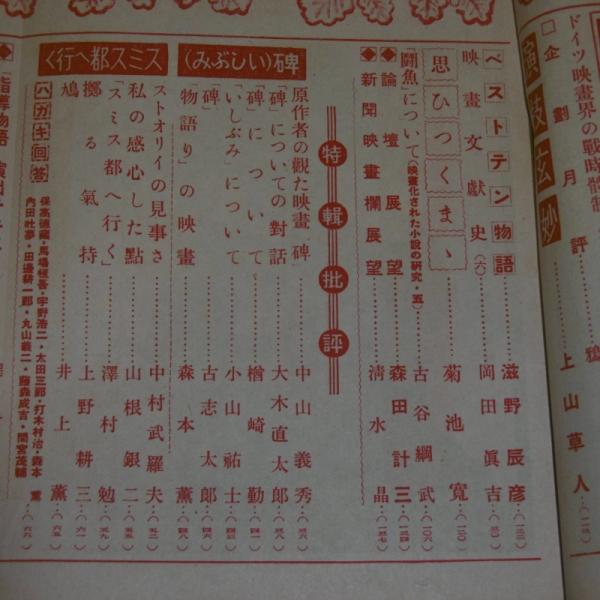 ドイツ映畫界の戰時體制
□企劃月評
上山草人
演技玄妙
ベストテン物語 滋野辰彦
映畫文獻史(六) 岡田眞吉
思ひつくまゝ 菊池寬
「鬪魚」について(映畫化された小說の硏究・五) 古谷綱武
◆論壇展望 森田計三
◆新聞映畫欄展望 淸水晶
特輯批評
碑(いしぶみ)
原作者の觀た映畫「碑」 中山義秀
「碑」についての對話 大木直太郎
「碑」について 楢崎勤
「いしぶみ」について 小山祐士
「碑」 古志太郎
「物語り」の映畫 森本薰
スミス都へ行く
ストオリイの見事さ 中村武羅夫
私の感心した點 山根銀二
「スミス都へ行く」 澤村勉
擲る氣持 上野耕三
鳩 井上薰
ハガキ回答
保高德藏・馬場恆吾・宇野浩二・太田三郎・打木村治・森本薰
內田吐夢・田邊耕一郎・丸山義二・藤森成吉・間宮茂輔
「指導物語」演出